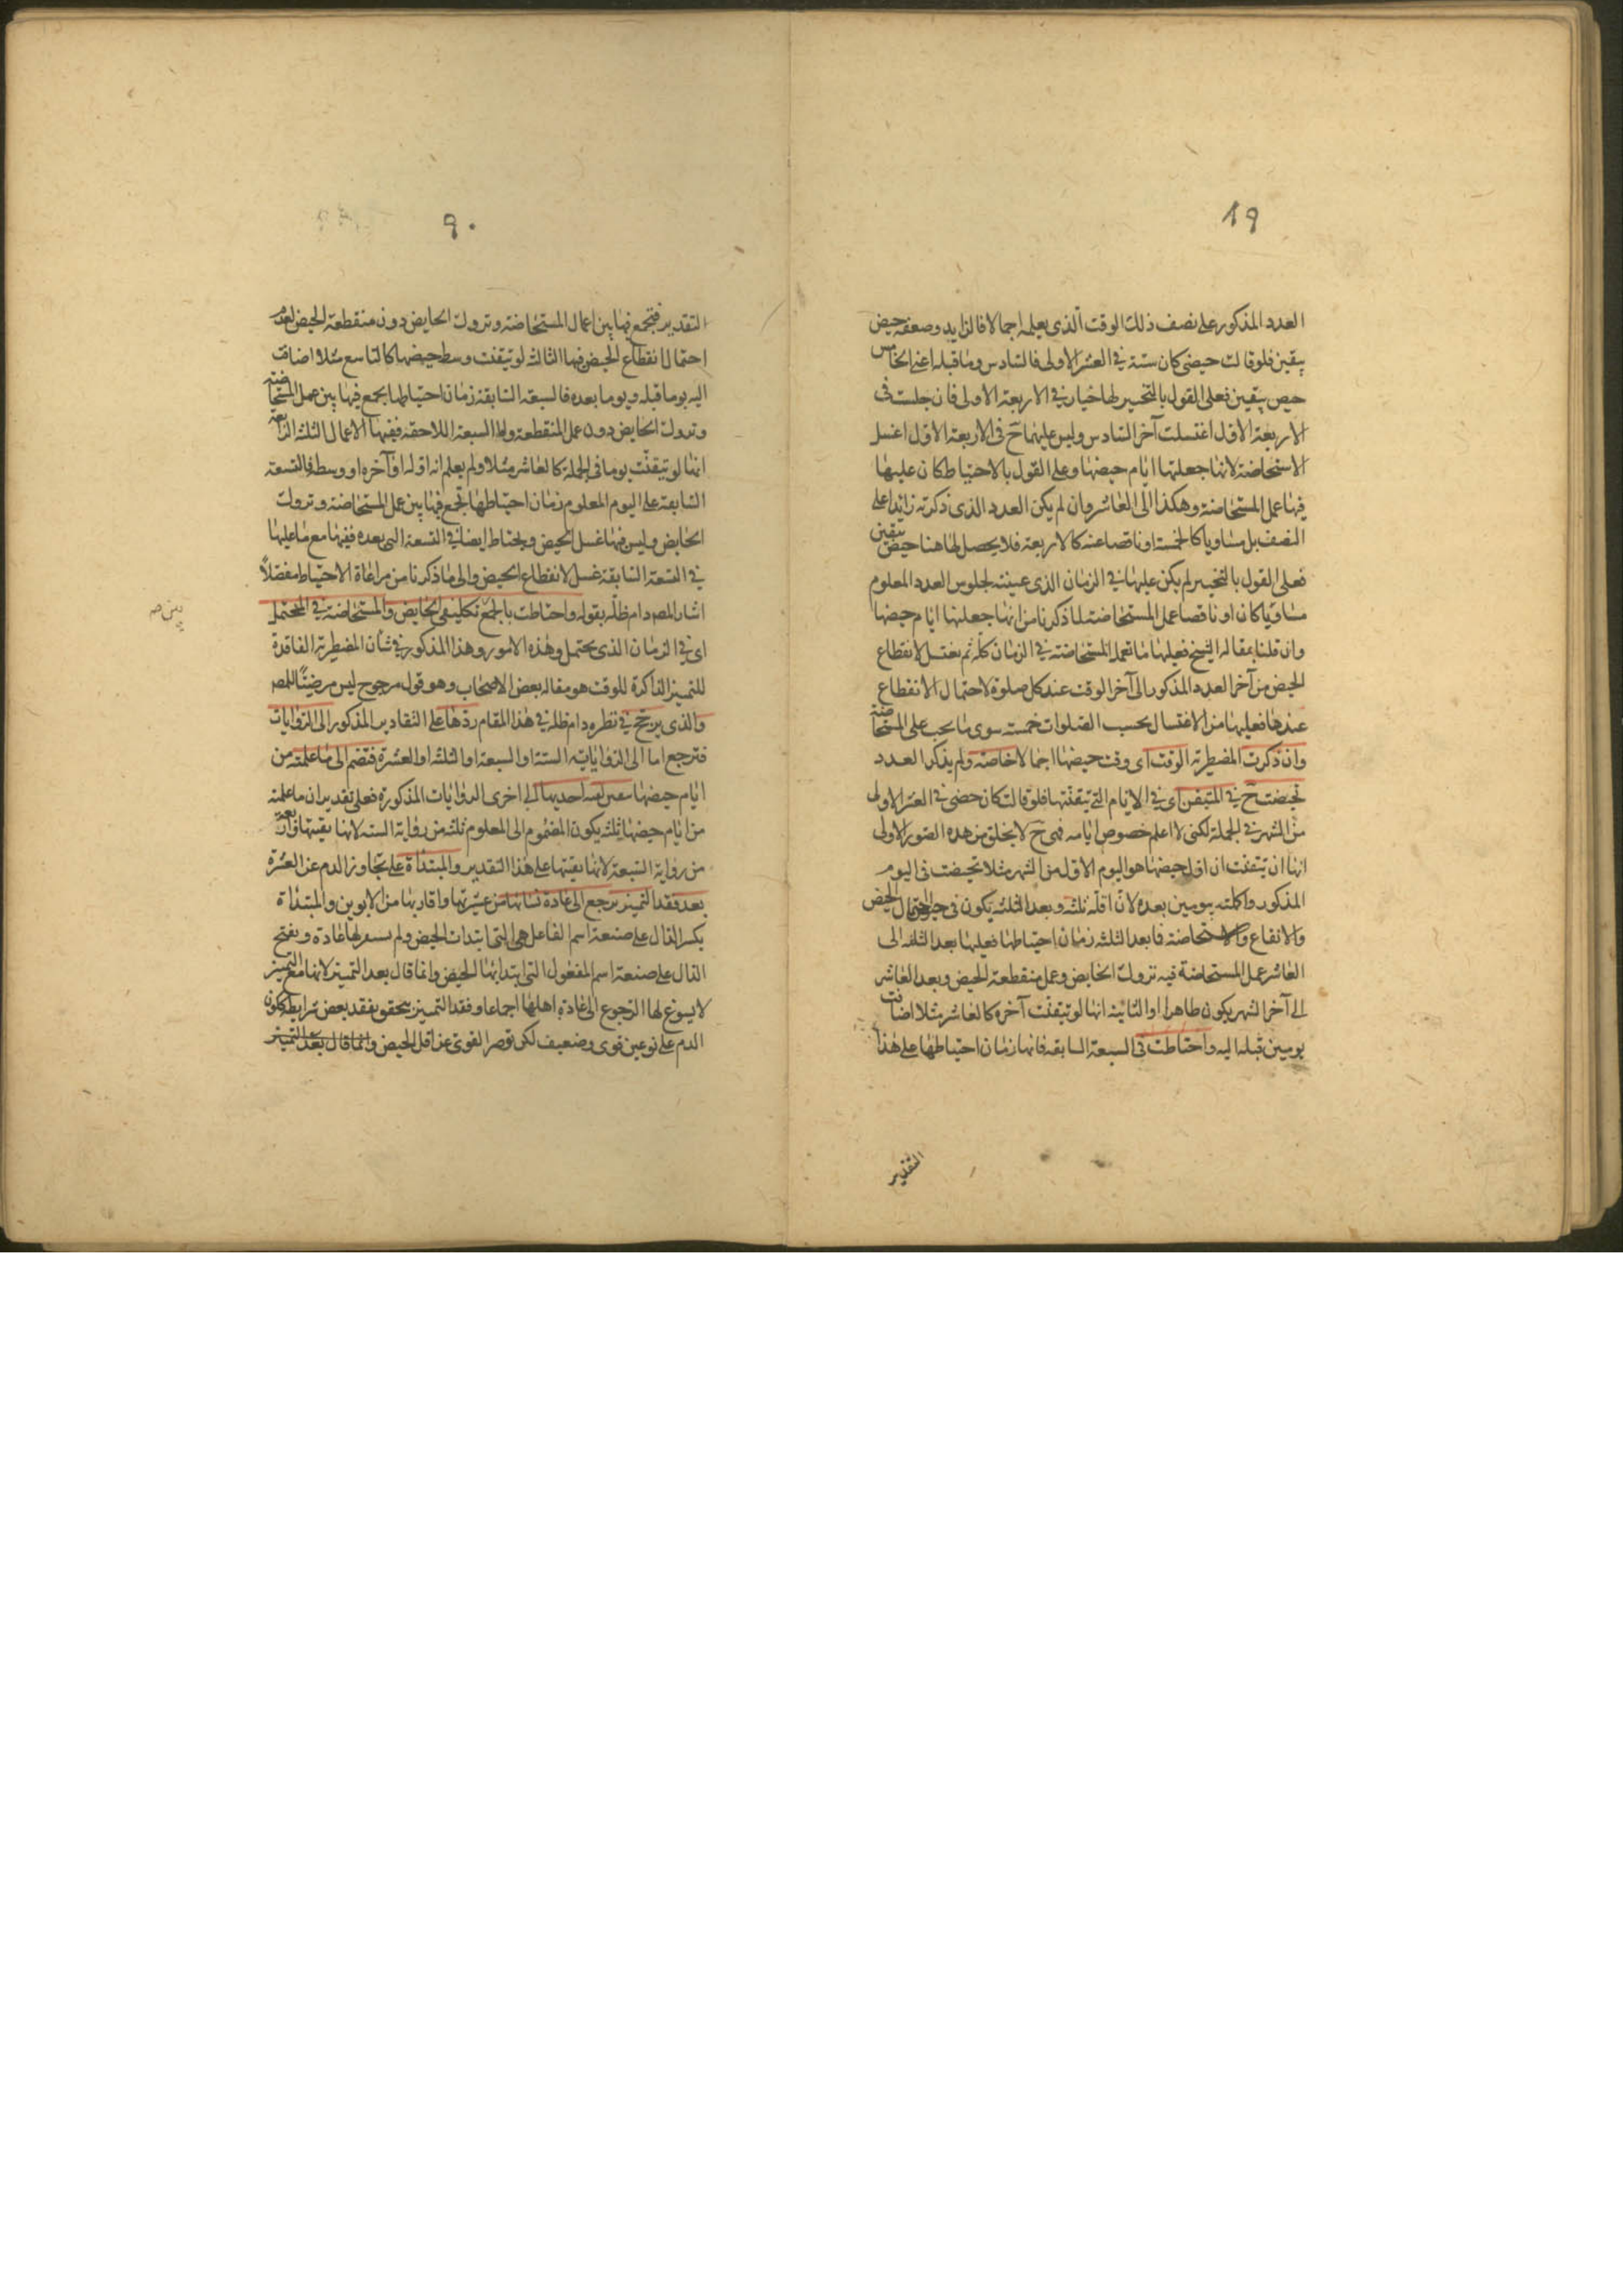 ٨٩
العدد المذكور على نصف ذلك الوقت الذى يعلمه اجمالا فالزايد وضعفه حيض
بيقين فلو قالت حيضى كان ستة فى العشر الاولى فالسادس وما قبله اعنى الخامس
حيض بيقين فعلى القول بالتخيير لها خيار فى الاربعة الاولى فان جلست فى
الاربعة الاول اغتسلت آخر السادس وليس عليها ح فى الاربعة الاول اغسل
الاستحاضة لانها جعلتها ايام حيضها وعلى القول بالاحتياط كان عليها
فيها عمل المستحاضة وهكذا الى العاشر وان لم يكن العدد الذى ذكرته زائدا على
النصف بل مساويا كالخمسة او ناقصا عنه كالاربعة فلا يحصل لها هنا حيض بيقين
فعلى القول بالتخيير لم يكن عليها فى الزمان الذى عينته لجلوس العدد المعلوم
مساويا كان او ناقصا عمل المستحاضة لما ذكرنا من انها جعلتها ايام حيضها
وان قلنا بمقالة الشيخ فعليها ما تعمله المستحاضة فى الزمان كله ثم تغتسل لانقطاع
الحيض من آخر العدد المذكور الى آخر الوقت عند كل صلوة لاحتمال الانقطاع
عندها فعليها من الاغتسال بحسب الصلوات خمسة سوى ما يجب على المستحاضة
وان ذكرت المضطربة الوقت اى وقت حيضها اجمالا خاصة ولم يذكر العدد
تحيضت ح فى المتيقن اى فى الايام التى تيقنتها فلو قالت كان حيضى فى العشر الاولى
من الشهر فى الجملة لكنى لا اعلم خصوص ايامه فهى ح لا يخلو من هذه الصور الاولى
انها ان تيقنت ان اول حيضها هو اليوم الاول من الشهر مثلا تحيضت فى اليوم
المذكور واكملته بيومين بعده لان اقله ثلثه وبعد الثلثه يكون فى احتمال الحيض
والانقطاع والاستحاضة فما بعد الثلثه زمان احتياطها فعليها بعد الثلثه الى
العاشر عمل المستحاضة فيه تروك الحايض وعمل منقطعة الحيض وبعد العاشر
الى آخر الشهر يكون طاهرا والثانية انها لو تيقنت آخره كالعاشر مثلا اضافت
يومين قبله اليه واحتاطت فى السبعة السابقه فانها زمان احتياطها على هذا
التقدير
٩٠
التقدير فتجمع فيها بين اعمال المستحاضة وتروك الحايض دون منقطعة الحيض لعدم
احتمال انقطاع الحيض فيها الثالثه لو تيقنت وسط حيضها كالتاسع مثلا اضافت
اليه يوما قبله ويوما بعده فالسبعة السابقة زمان احتياطها يجمع فيها بين عمل المستحاضة
وتروك الحايض دون عمل المنقطعة واما السبعة اللاحقه ففيها الاعمال الثلثه الرابعة
انها لو تيقنت يوما فى الجملة كالعاشر مثلا ولم يعلم انه اوله او آخره او وسطه فالتسعة
السابقة على اليوم المعلوم زمان احتياطها تجمع فيها بين عمل المستحاضة وتروك
الحايض وليس فيها غسل الحيض ويحتاط ايضا فى التسعة التى بعده ففيها مع ما عليها
فى التسعة السابقة غسل لانقطاع الحيض والى ما ذكرنا من مراعاة الاحتياط مفصلاً
اشار المصه دام ظله بقوله واحتاطت بالجمع تكليفى الحايض والمستحاضة فى المحتمل
اى فى الزمان الذى يحتمل وهذه الامور وهذا المذكور فى شأن المضطربة الفاقدة
للتميز الذاكرة للوقت هو مقاله بعض الاصحاب وهو قول مرجوح ليس مرضيًا للمصه
والذى يرجح فى نظره دام ظله فى هذا المقام ردها على التقادير المذكور الى الروايات
فترجع اما الى الروايات الستة او السبعة او الثلثه او العشرة فتضم الى ما علمته من
ايام حيضها احديها الى اخرى الروايات المذكورة فعلى تقدير ان ما علمته
من ايام حيضها ثلثه يكون المضموم الى المعلوم ثلثه من رواية الستة لانها بقيتها واربعة
من رواية السبعة لانها بقيتها على هذا التقدير والمبتداة على تجاوز الدم عن العشرة
بعد فقد التميز يرجع الى عادة نسائها من عشيرتها واقاربها من الابوين والمبتداة
بكسر الدال على صنعة اسم الفاعل هى التى ابتدات الحيض ولم يستقر لها عادة وبفتح
الدال على صنعة اسم المفعول التى ابتدا بها الحيض وانما قال بعد التميز لانها مع التميز
لا يسوغ لها الرجوع الى عادة اهلها اجماعا وفقد التميز يتحقق بفقد بعض شرايطه ككون
الدم على نوعين قوى وضعيف لكن قصر القوى عن اقل الحيض وانما قال بعد التميز